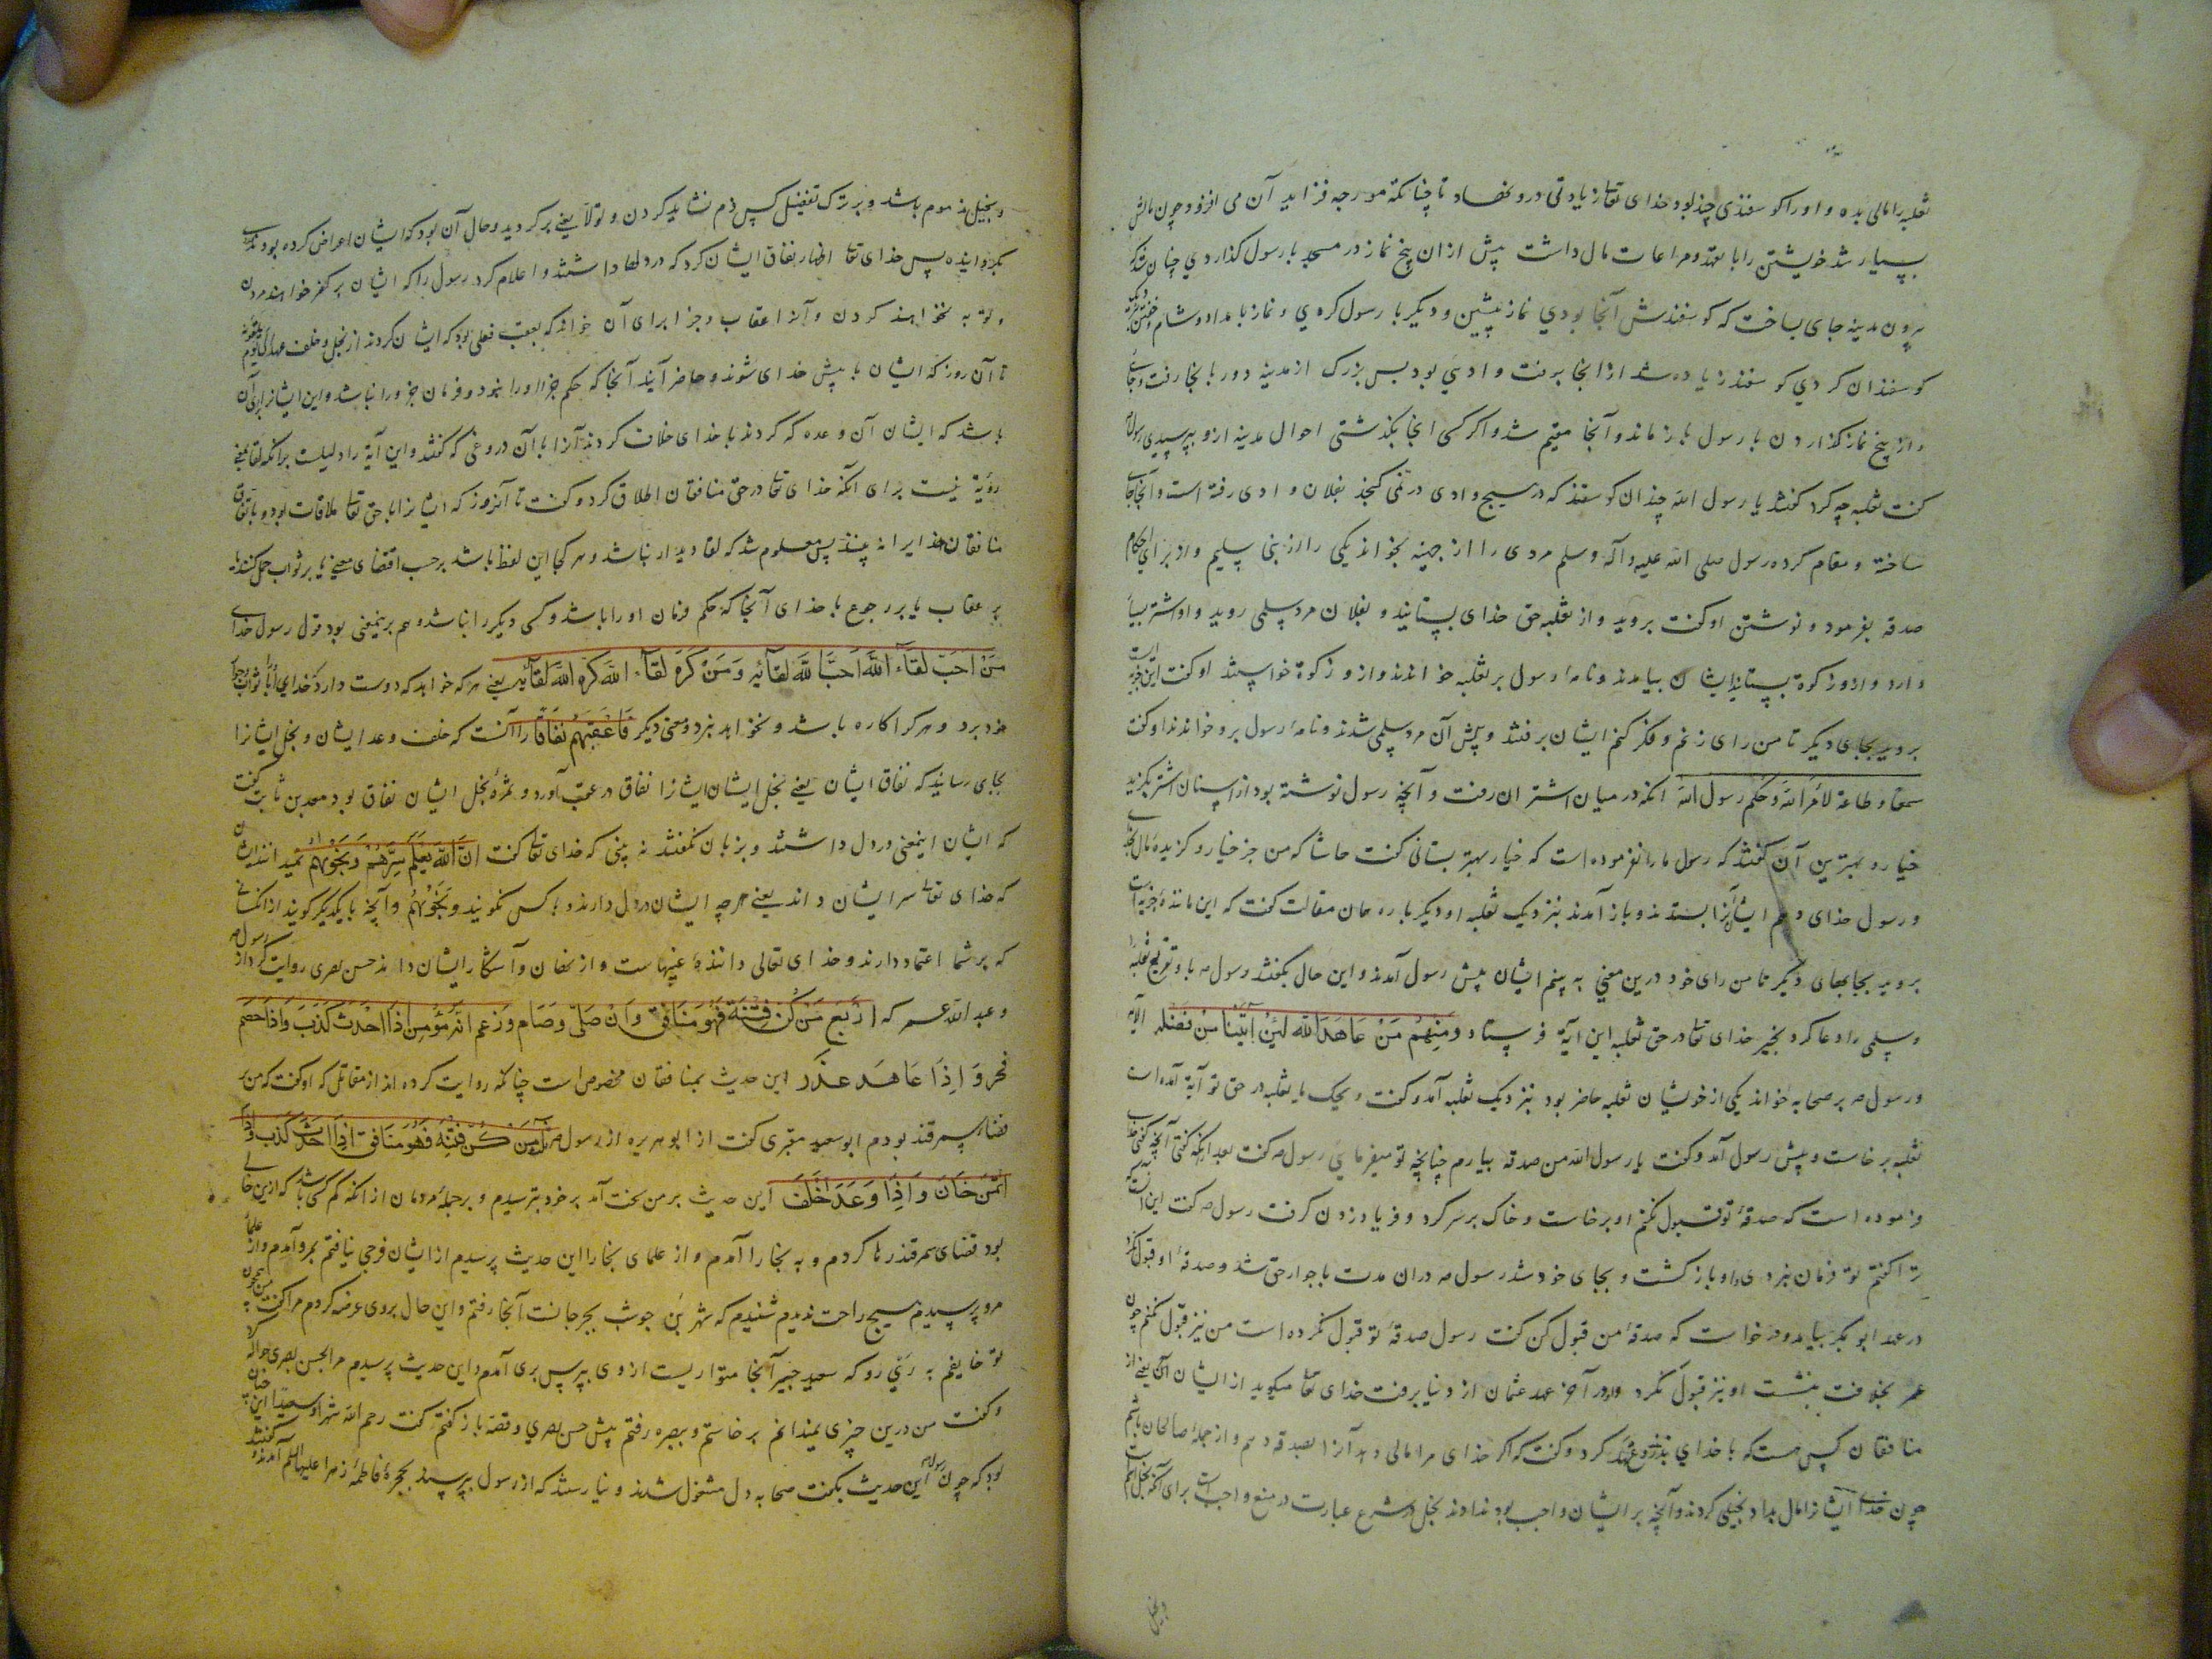 ثعلبه را مالی بده و او را کوسفندی چند بود خدای تعا زیادتی درو نهاد تا چنانکه مورچه فزاید آن می افزود چون مالش
بسیار شد خویشتن را با تعهد و مراعات مال داشت پیش ازان پنج نماز در مسجد با رسول کذاردی چنان شد که
بیرون مدینه جای بساخت که کوسفندش آنجا بودی نماز پیشین و دیکر با رسول کردی و نماز بامداد و شام و خفتن
کوسفندان کردی کوسفند زیاده شد از انجا برفت وادئی بود بس بزرک از مدینه دور بانجا رفت
و از پنج نماز کذاردن با رسول باز ماند و آنجا مقیم شد و اکر کسی انجا بکذشتی احوال مدینه ازو بپرسیدی رسول
کفت ثعلبه چه کرد کفتند یا رسول الله چندان کوسفند که در هیچ وادی در نمی کنجد بفلان وادی رفته است و آنجا جای
ساخته و مقام کرده رسول صلی الله علیه و آله وسلم مردی را از جهینه بخواند یکی را از بنی سلیم و از برای احکام
صدقه بفرمود نوشتن او کفت بروید و از ثعلبه حق خدای بستانید و بفلان مرد سلمی روید و او شتر بسیار
دارد و ازو زکوة بستانید ایشان بیامدند و نامه رسول بر ثعلبه خواندند و ازو زکوة خواستند او کفت این جزیه است
بروید بجای دیکر تا من رای زنم و فکر کنم ایشان برفتند و پیش آن مرد سلمی شدند و نامهٔ رسول برو خواندند او کفت
سمعا و طاعة لامر الله و حکم رسول الله انکه در میان اشتران رفت و آنچه رسول نوشته بود از اسنان اشتر بکزید
خیار و بهترین آن کفتند که رسول ما را نفرموده است که خیار بهتر بستانی کفت حاشا که من جز خیار و کزیدهٔ مال بخدای
و رسول خدای دهم ایشان آنرا بستدند و باز آمدند بنزدیک ثعلبه او دیکر باره همان مقالت کفت که این مانندهٔ جزیه است
بروید بجایهای دیکر تا من رای خود درین معنی به بینم ایشان پیش رسول آمدند و این حال بکفتند رسول ص
و سلمی را دعا کرد بخیر خدای تعا در حق ثعلبه این آیة فرستاد ومنهم من عاهد الله لئن آتینا من فضله الایه
و رسول ص بر صحابه خواند یکی از خویشان ثعلبه حاضر بود بنزدیک ثعلبه آمد و کفت ویحک یا ثعلبه در حق تو آیة آمده است
ثعلبه برخاست و پیش رسول آمد و کفت یا رسول الله من صدقه بیارم چنانچه تو میفرمایی رسول ص کفت بعد ازینکه کفتی آنچه کفتی خدای
فرموده است که صدقهٔ تو قبول نکنم او برخاست و خاک بر سر کرد و فریاد زدن کرفت رسول ص کفت این آنست که
ترا کفتم تو فرمان نبردی او باز کشت و بجای خود شد رسول ص دران مدت با جوار حق شد و صدقهٔ او قبول نکرد
در عهد ابوبکر بیامد و درخواست که صدقهٔ من قبول کن کفت رسول صدقهٔ تو قبول نکرده است من نیز قبول نکنم چون
عمر بخلافت بنشست او نیز قبول نکرد و او در آخر عهد عثمان از دنیا برفت خدای تعا میکوید از ایشان یعنی از
منافقان کس هست که با خدای نذر و عهد کرد و کفت که اکر خدای مرا مالی دهد آنرا بصدقه دهم و از جملهٔ صالحان باشم
چون خدای ایشانرا مال بداد بخیلی کردند و آنچه بر ایشان واجب بود ندادند بخل در شرع عبارت در منع واجب است برای آنکه بخل اسم
و بخیل
و بخیل مذموم باشد و بر ترک تفضل کس ذم نشاید کردن و تولا یعنی بر کردید و حال آن بود که ایشان اعراض کرده بودند
پس خدای تعا اظهار نفاق ایشان کرد که در دلها داشتند و اعلام کرد رسول را که ایشان بر کفر خواهند مردن
و توبه نخواهند کردن و آنرا عقاب و جزا برای آن خواند که بعقب فعلی بود که ایشان کردند از بخل و خلف عهد
تا آن روز که ایشان با پیش خدای شوند و حاضر آیند آنجا که حکم جز او را نبود و فرمان جز ورا نباشد و این ایشانرا برای آن
باشد که ایشان آن وعده که کردند با خدای خلاف کردند آنرا با آن دروغی که کفتند و این آیة را دلیلست برانکه لقا بمعنی
رؤیة نیست برای آنکه خدای تعا در حق منافقان اطلاق کرد و کفت تا آنروز که ایشانرا با حق تعا ملاقات بود و باتفاق
منافقان خدایرا نه بینند پس معلوم شد که لقا دیدار نباشد و هر کجا این لفظ باشد بر حسب اقتضای معنی یا بر ثواب حمل کنند یا
بر عقاب یا بر رجوع با خدای آنجا که حکم و فرمان او را باشد و کسی دیکر را نباشد و هم برینمعنی بود قول رسول خدای
من احب لقآء الله احب الله لقآئه ومن کره لقآء الله کره الله لقآئه یعنی هر که خواهد که دوست دارد خدای را با ثواب و جوار
خود برد و هر که را کاره باشد و نخواهد نبرد و معنی دیکر فاعقبهم نفاقا را آنست که خلف وعد ایشان و بخل ایشانرا
بجای رسانید که نفاق ایشان یعنی بخل ایشان ایشانرا نفاق در عقب آورد و ثمرهٔ بخل ایشان نفاق بود
که ایشان اینمعنی در دل داشتند و بزبان نکفتند نه بینی که خدای تعا کفت ان الله یعلم سرهم ونجوٰیهم نمیدانند ایشان
که خدای تعا سر ایشان داند یعنی هر چه ایشان در دل دارند و با کس نکویند ونجوٰیهم و آنچه با یکدیکر کویند از آنکسانی
که بر شما اعتماد دارند و خدای تعالی دانندهٔ غیبهاست و از نهان و آشکار ایشان داند حسن بصری روایت کرد از رسول ص
و عبد الله عمر که اربع من کن فیه فهو منافق وان صلی وصام وزعم انه مؤمن اذا احدث کذب واذا خصم
فجر واذا عاهد غدر این حدیث بمنافقان مخصوص است چنانکه روایت کرده اند از مقاتل که او کفت که من بر
قضای سمرقند بودم ابو سعید مقبری کفت از ابو هریره از رسول ص ثلث من کن فیه فهو منافق اذا احدث کذب واذا
ائتمن خان واذا وعد اخلف این حدیث بر من سخت آمد بر خود بترسیدم و بر جملهٔ مردمان از آنکه کم کسی باشد که ازین خالی
بود قضای سمرقند رها کردم و به بخارا آمدم و از علمای بخارا این حدیث پرسیدم از ایشان فرجی نیافتم بمرو آمدم و از علمای
مرو پرسیدم هیچ راحت ندیدم شنیدم که شهر بن حوشب بجرجانست آنجا رفتم و این حال بروی عرضه کردم مرا کفت من چون
تو خایفم به ری رو که سعید جبیر آنجا متواریست از وی بپرس بری آمدم و این حدیث پرسیدم مرا بحسن بصری حواله کرد
و کفت من درین چیزی نمیدانم برخاستم و ببصره رفتم پیش حسن بصری و قصه باز کفتم کفت رحم الله شهرا و سعیدا این چنان
بود که چون رسول ص این حدیث بکفت صحابه دل مشغول شدند و نیارستند که از رسول بپرسند بحجرهٔ فاطمهٔ زهرا علیها السلم آمدند و کفتند